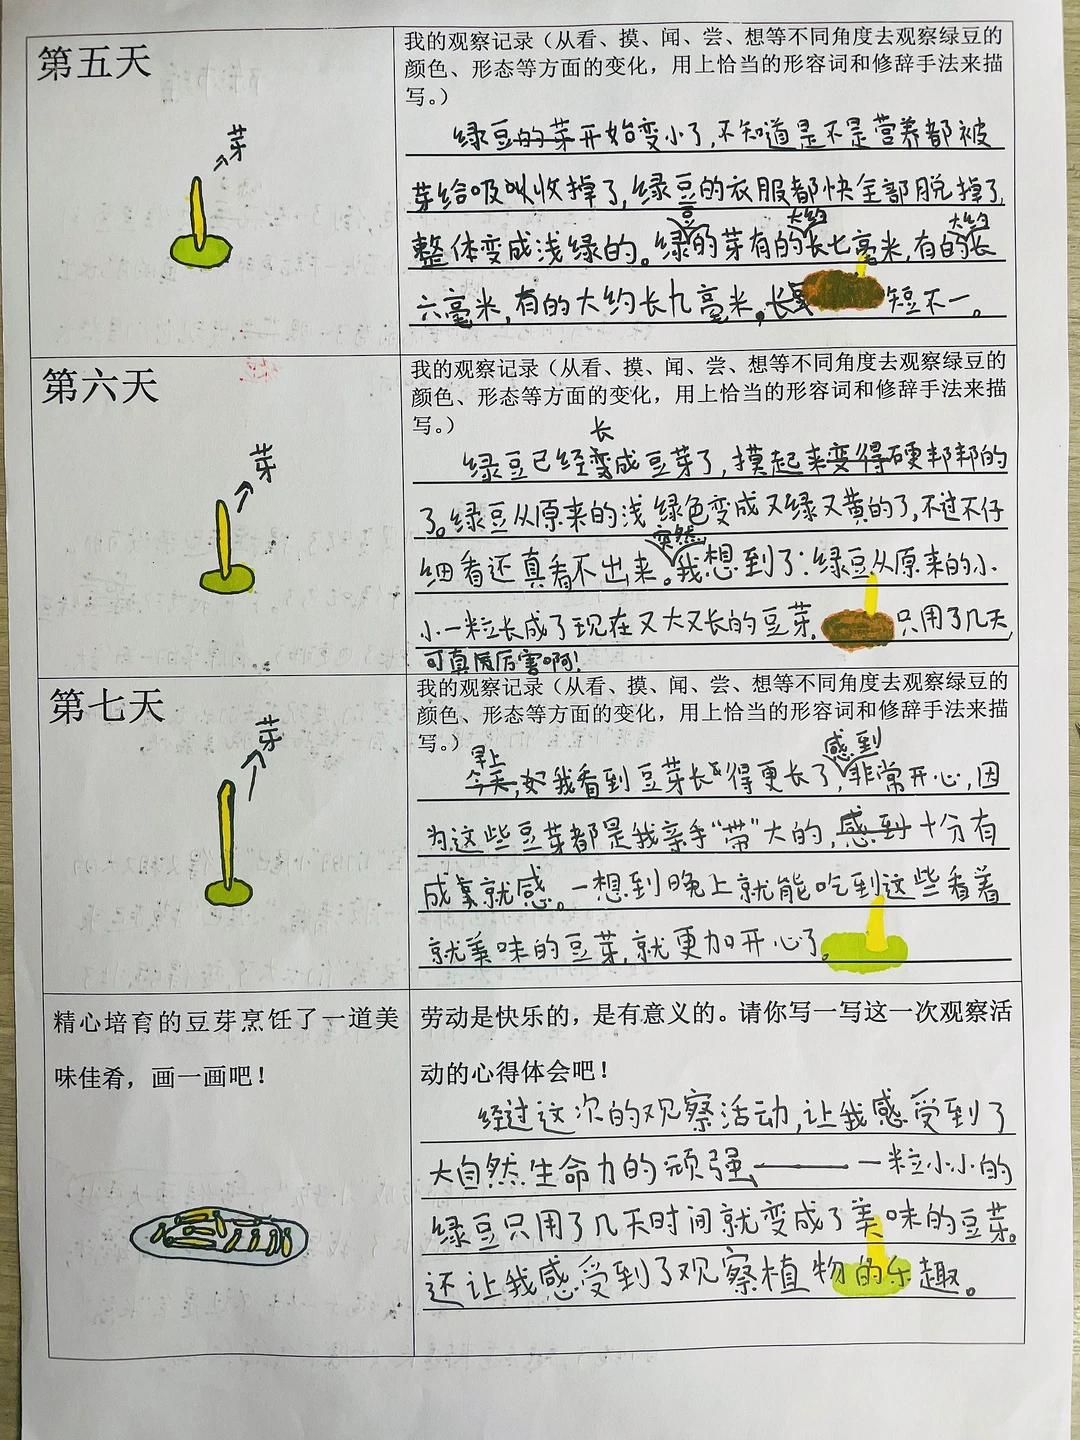 第五天
芽
我的观察记录（从看、摸、闻、尝、想等不同角度去观察绿豆的
颜色、形态等方面的变化，用上恰当的形容词和修辞手法来描
写。）
绿豆的芽开始变小了,不知道是不是营养都被
芽给吸收掉了,绿豆的衣服都快全部脱掉了,
豆 大约 大约
整体变成浅绿的。绿的芽有的长七毫米,有的长
六毫米,有的大约长九毫米。长 短不一。
第六天
芽
我的观察记录（从看、摸、闻、尝、想等不同角度去观察绿豆的
颜色、形态等方面的变化，用上恰当的形容词和修辞手法来描
写。）
长
绿豆已经变成豆芽了,摸起来变得硬邦邦的
了。绿豆从原来的浅绿色变成又绿又黄的了,不过不仔
突然
细看还真看不出来。我想到了:绿豆从原来的小
小一粒长成了现在又大又长的豆芽, 只用了几天,
可真厉害啊!
第七天
芽
我的观察记录（从看、摸、闻、尝、想等不同角度去观察绿豆的
颜色、形态等方面的变化，用上恰当的形容词和修辞手法来描
写。）
早上 感到
今天,我看到豆芽长得更长了,非常开心,因
为这些豆芽都是我亲手“带”大的,感到十分有
成就感。一想到晚上就能吃到这些看着
就美味的豆芽,就更加开心了。
精心培育的豆芽烹饪了一道美
味佳肴，画一画吧！
劳动是快乐的，是有意义的。请你写一写这一次观察活
动的心得体会吧！
经过这次的观察活动,让我感受到了
大自然生命力的顽强,——一粒小小的
绿豆只用了几天时间就变成了美味的豆芽。
还让我感受到了观察植物的乐趣。